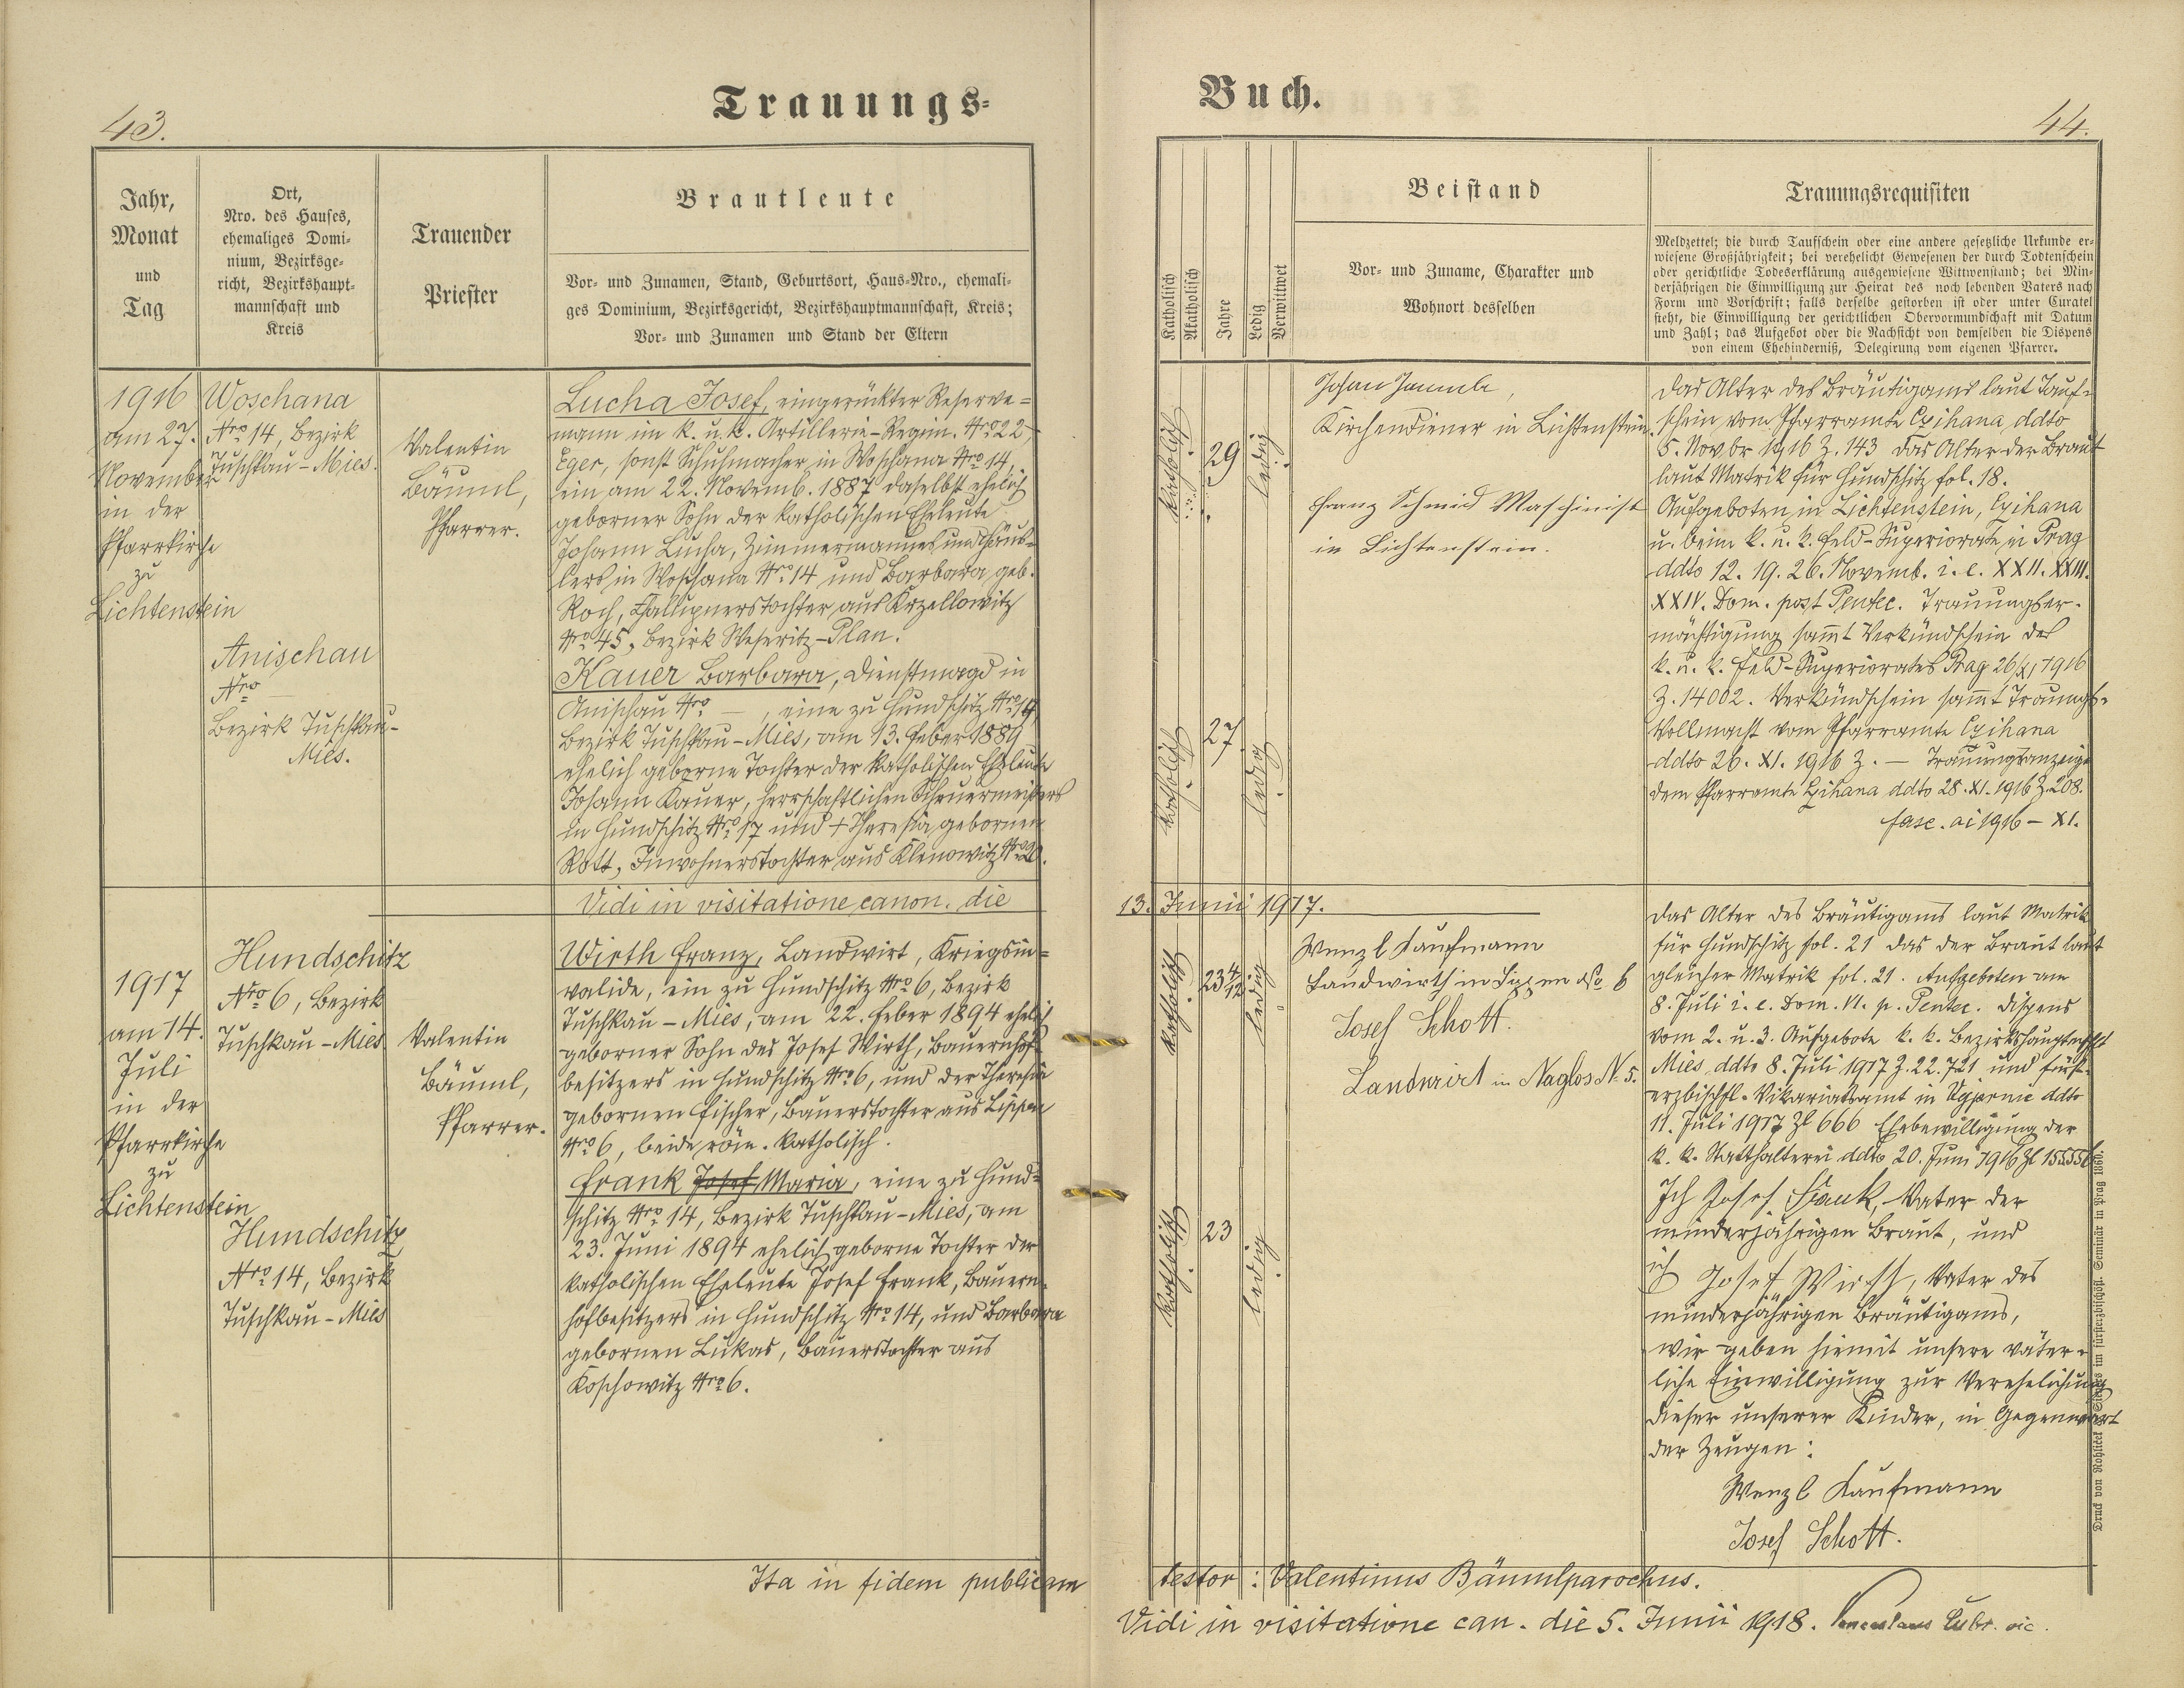 43.
Trauungs-
Jahr,
Monat
und
Tag
Ort,
Nro. des Hauses,
ehemaliges Domi-
nium, Bezirksge-
richt, Bezirkshaupt-
mannschaft und
Kreis
Trauender
Priester
Brautleute
Vor- und Zunamen, Stand, Geburtsort, Haus-Nro., ehemali-
ges Dominium, Bezirksgericht, Bezirkshauptmannschaft, Kreis;
Vor- und Zunamen und Stand der Eltern
1916
am 27.
November
in der
Pfarrkirche
zu
Lichtenstein
Woschana
Nro 14, Bezirk
Tuschkau-Mies.
Anischau
Nro —
Bezirk Tuschkau-
Mies.
Valentin
Bäuml,
Pfarrer.
Lucha Josef, eingerückter Reserve=
mann im k. u. k. Artillerie-Regim. Nro 22,
Eger, sonst Schuhmacher in Woschana Nro 14,
ein am 22. Novemb. 1887 daselbst ehelich
geborner Sohn der katholischen Eheleute
Johann Lucha, Zimmermannes und Häus-
lers in Woschana Nro 14 und Barbara geb.
Roch, Chalupnerstochter aus Krzellowitz
Nro 45, Bezirk Weseritz-Plan.
Kauer Barbara, Dienstmagd in
Anischau Nro —, eine zu Hundschitz Nro 14,
Bezirk Tuschkau-Mies, am 13. Feber 1889
ehelich geborne Tochter der katholischen Eheleute
Johann Kauer, herrschaftlichen Scheuermeisters
in Hundschitz Nro 17 und + Theresia gebornen
Rott, Inwohnerstochter aus Klenowitz Nro 20.
Vidi in visitatione canon. die
1917
am 14.
Juli
in der
Pfarrkirche
zu
Lichtenstein
Hundschitz
Nro 6, Bezirk
Tuschkau-Mies
Hundschitz
Nro 14, Bezirk
Tuschkau-Mies
Valentin
Bäuml,
Pfarrer.
Wirth Franz, Landwirt, Kriegsin=
valide, ein zu Hundschitz Nro 6, Bezirk
Tuschkau-Mies, am 22. Feber 1894 ehelich
geborner Sohn des Josef Wirth, Bauernhof-
besitzers in Hundschitz Nro 6, und der Theresia
gebornen Fischer, Bauerstochter aus Lippen
Nro 6, beide röm. katholisch.
Frank Josef Maria, eine zu Hund=
schitz Nro 14, Bezirk Tuschkau-Mies, am
23. Juni 1894 ehelich geborne Tochter der
katholischen Eheleute Josef Frank, Bauern-
hofbesitzers in Hundschitz Nro 14, und Barbara
gebornen Lukas, Bauerstochter aus
Koschowitz Nro 6.
Ita in fidem publicam
Buch.
44.
Katholisch
Akatholisch
Jahre
Ledig
Verwitwet
Beistand
Vor- und Zuname, Charakter und
Wohnort desselben
Trauungsrequisiten
Meldzettel; die durch Taufschein oder eine andere gesetzliche Urkunde er-
wiesene Großjährigkeit; bei verehelicht Gewesenen der durch Todtenschein
oder gerichtliche Todeserklärung ausgewiesene Wittwenstand; bei Min-
derjährigen die Einwilligung zur Heirat des noch lebenden Vaters nach
Form und Vorschrift; falls derselbe gestorben ist oder unter Curatel
steht, die Einwilligung der gerichtlichen Obervormundschaft mit Datum
und Zahl; das Aufgebot oder die Nachsicht von demselben die Dispens
von einem Ehehinderniß, Delegirung vom eigenen Pfarrer.
katholisch
29
ledig
katholisch
27
ledig
Johann
Kirchendiener in Lichtenstein.
Franz Schmid Maschinist
in Lichtenstein.
Das Alter des Bräutigams laut Tauf-
schein vom Pfarramte Czihana, ddto
5. Novbr 1916 Z. 143 das Alter der Braut
laut Matrik für Hundschitz fol. 18.
Aufgeboten in Lichtenstein, Czihana
u. beim k. u. k. Feld-Superiorate in Prag
ddto 12. 19. 26. Novemb. i. e. XXII. XXIII.
XXIV. Dom. post Pentec. Trauungser-
mächtigung sammt Verkündschein des
k. u. k. Feld-Superiorates Prag 26/XI 1916
Z. 14002. Verkündschein sammt Trauungs-
Vollmacht vom Pfarramte Czihana
ddto 26. XI. 1916 Z. — Trauungsanzeige
dem Pfarramte Czihana ddto 28. XI. 1916 Z. 208.
fasc. ai 1916 – XI.
13. Junii 1917.
katholisch
23 4/12
ledig
katholisch
23
ledig
Wenzl Kaufmann
Landwirth in Lippen No 6
Josef Schott.
Landwirt in Naglos N. 5.
Das Alter des Bräutigams laut Matrik
für Hundschitz fol. 21 das der Braut laut
gleicher Matrik fol. 21. Aufgeboten am
8. Juli i. e. Dom. VI. p. Pentec. Dispens
vom 2. u. 3. Aufgebote k. k. Bezirkshauptmschft
Mies ddto 8. Juli 1917 Z. 22.721 und fürst-
erzbischfl. Vikariatsamt in ddto
11. Juli 1917 Zl 666 Ehebewilligung der
k. k. Statthalterei ddto 20. Juni 1916 Zl
Ich Josef Frank, Vater der
minderjährigen Braut, und
ich Josef Wirth, Vater des
minderjährigen Bräutigams,
wir geben hiemit unsere väter-
liche Einwilligung zur Verehelichung
dieser unserer Kinder, in Gegenwart
der Zeugen:
Wenzl Kaufmann
Josef Schott.
testor: Valentinus Bäuml parochus.
Vidi in visitatione can. die 5. Junii 1918. vic.